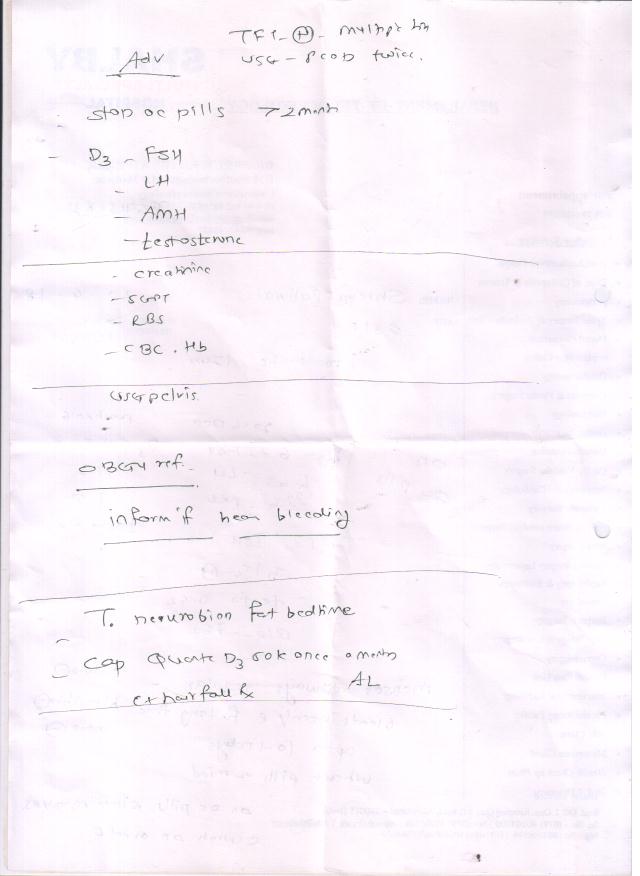 TFT - (+) - multiple
USG - PCOD twice.
Adv
- stop oc pills > 2 month
- D3 - FSH
- LH
- AMH
- testosterone
- creatinine
- SGPT
- RBS
- CBC . Hb
USG pelvis.
OBGY ref.
inform if heavy bleeding
T. neurobion bedtime
- Cap D3 60k once a month
ct hairfall Rx AL